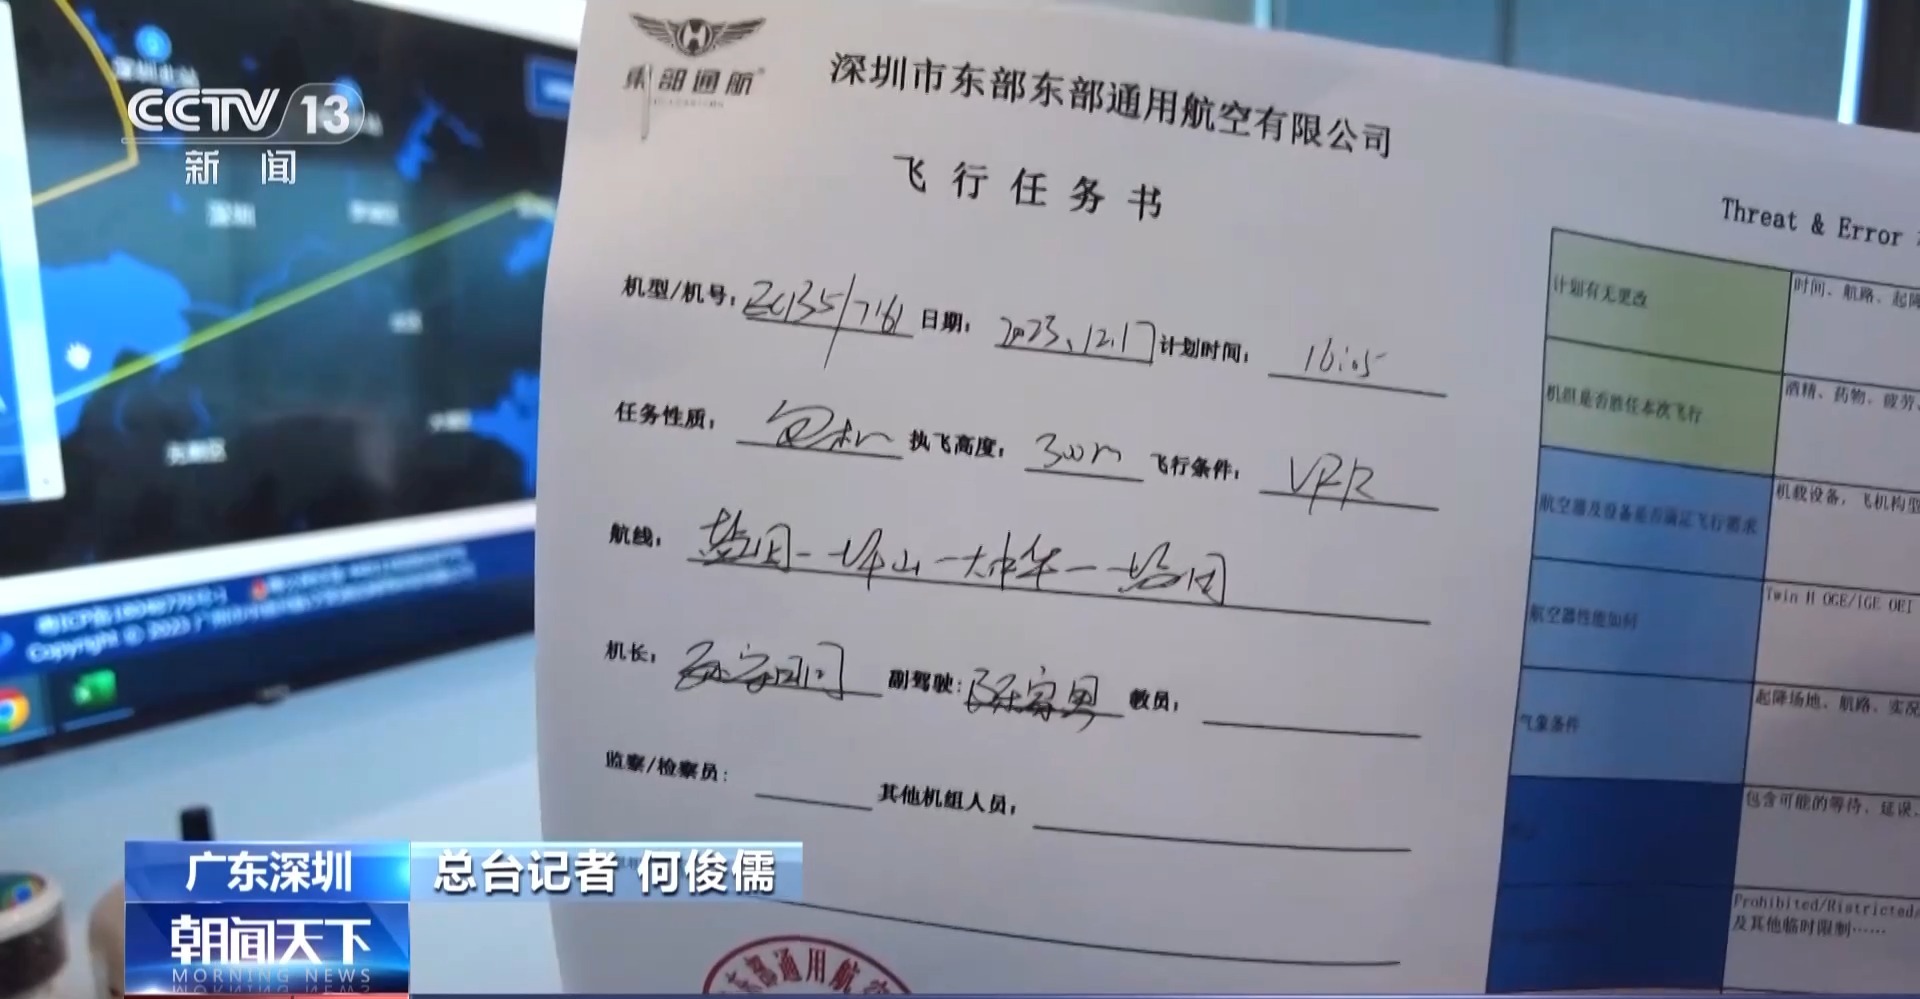 CCTV 13
新闻
东部通航
深圳市东部东部通用航空有限公司
飞行任务书
机型/机号：EC135/7161 日期：2023.12.17 计划时间：16:05
任务性质：包机 执飞高度：300m 飞行条件：VFR
航线：盐田-坪山-大中华-盐田
机长： 副驾驶： 教员：
监察/检察员： 其他机组人员：
Threat & Error
计划有无更改 时间、航路、起降
机组是否胜任本次飞行 酒精、药物、疲劳、
航空器及设备是否满足飞行要求 机载设备，飞机构型
航空器性能如何 Twin H OGE/IGE OEI
气象条件 起降场地、航路、实况
包含可能的等待、延误、
Prohibited/Ristricted/
及其他临时限制……
部通用航空
深圳
Copyright © 2023
广东深圳 总台记者 何俊儒
朝闻天下
MORNING NEWS